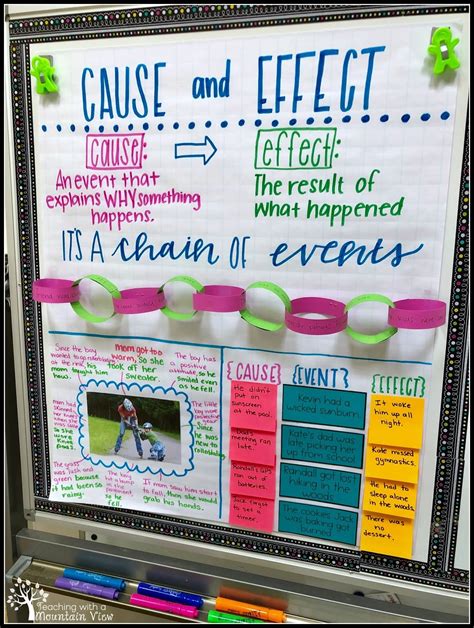 CAUSE and EFFECT
cause:
An event that
explains WHY something
happens.
effect:
The result of
what happened
IT'S A chain OF events
Since the boy
wanted to go
mom got too
warm, so she
took off her
sweater.
The boy
has a
positive
attitude, so he
smiled even
as he fell.
The grass
was lush and
green because
it had been so
rainy.
The boy
hit a bump
in the
pavement,
so he
fell.
If mom saw him start
to fall, then she would
grab his hands.
Since
he was
new to
rollerblading
{CAUSE}
He didn't
put on
sunscreen
at the pool.
Dad's
meeting
ran late.
Randall's GPS
ran out of
batteries.
Jack forgot
to set a
timer.
{EVENT}
Kevin had a
wicked sunburn.
Kate's dad was
late picking her
up from school
Randall got lost
hiking in the
woods
The cookies Jack
was baking got
burned
{EFFECT}
It woke
him up all
night.
Kate missed
gymnastics.
He had to
sleep alone
in the woods.
There was
no
dessert.
Teaching with a
Mountain View